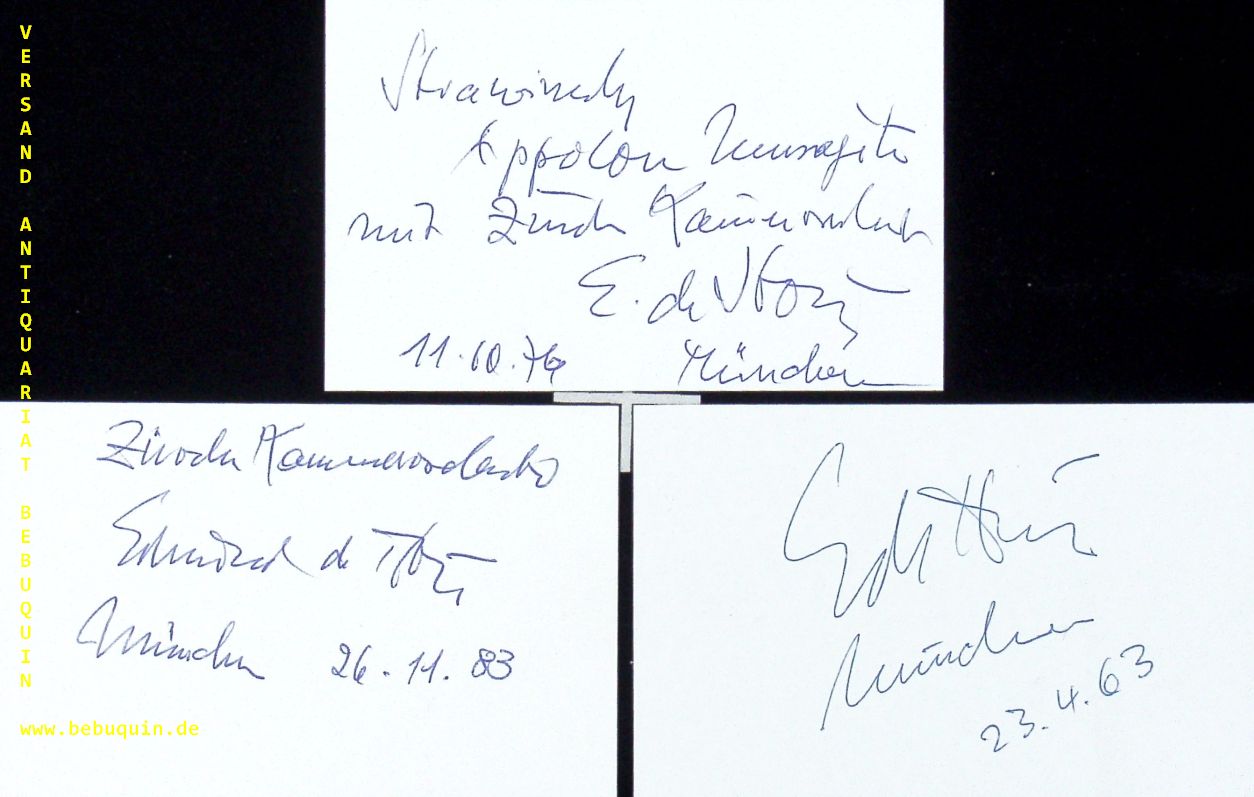 VERSAND ANTIQUARIAT BEBUQUIN
www.bebuquin.de
Strawinsky
Appolon Musagète
mit Zürch Kammerorchest
E. de Stoutz
11.10.76 München
Zürcher Kammerorchester
Edmond de Stoutz
München 26.11.83
München
23.4.63